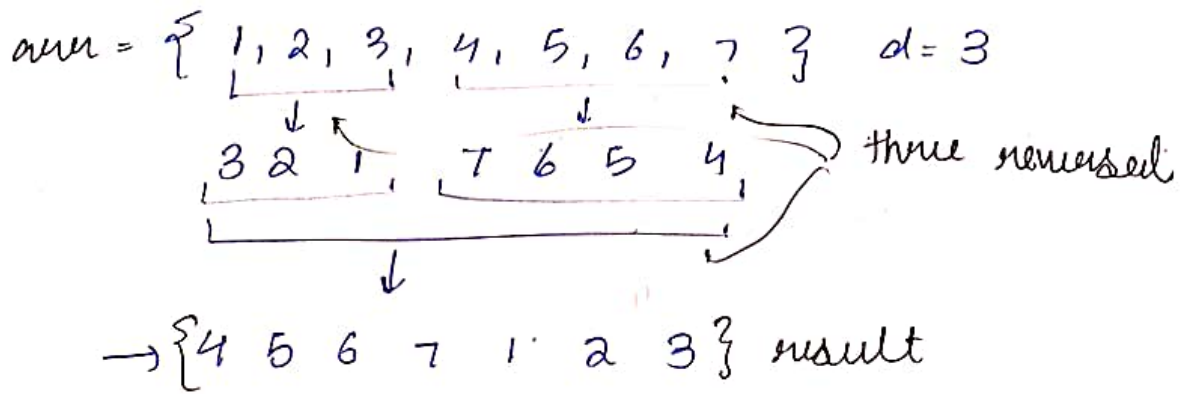 arr = { 1, 2, 3, 4, 5, 6, 7 } d = 3
3 2 1 7 6 5 4
three reversed
→ {4 5 6 7 1 2 3} result